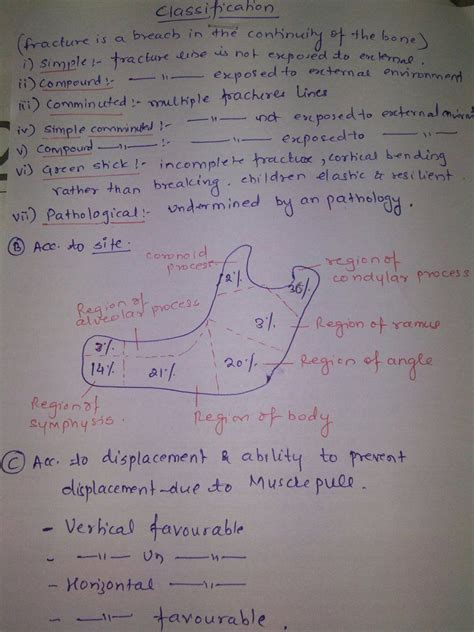 Classification
(fracture is a breach in the continuity of the bone)
i) Simple :- fracture line is not exposed to external.
ii) Compound :- —"— exposed to external environment
iii) Comminuted :- multiple fractures lines
iv) Simple comminuted :- —"— not exposed to external
v) Compound —"— :- exposed to —"—
vi) Green stick :- incomplete fracture, cortical bending
rather than breaking. children elastic & resilient.
vii) Pathological :- undermined by an pathology.
(B) Acc. to site.
coronoid
process
region of
condylar process
2%.
36%.
Region of
alveolar process
3%.
Region of ramus
3%.
14%.
21%.
20%.
Region of angle
Region of
symphysis.
Region of body
(C) Acc. to displacement & ability to prevent
displacement due to Muscle pull.
- Vertical favourable
- —"— un —"—
- Horizontal —"—
- —"— favourable.